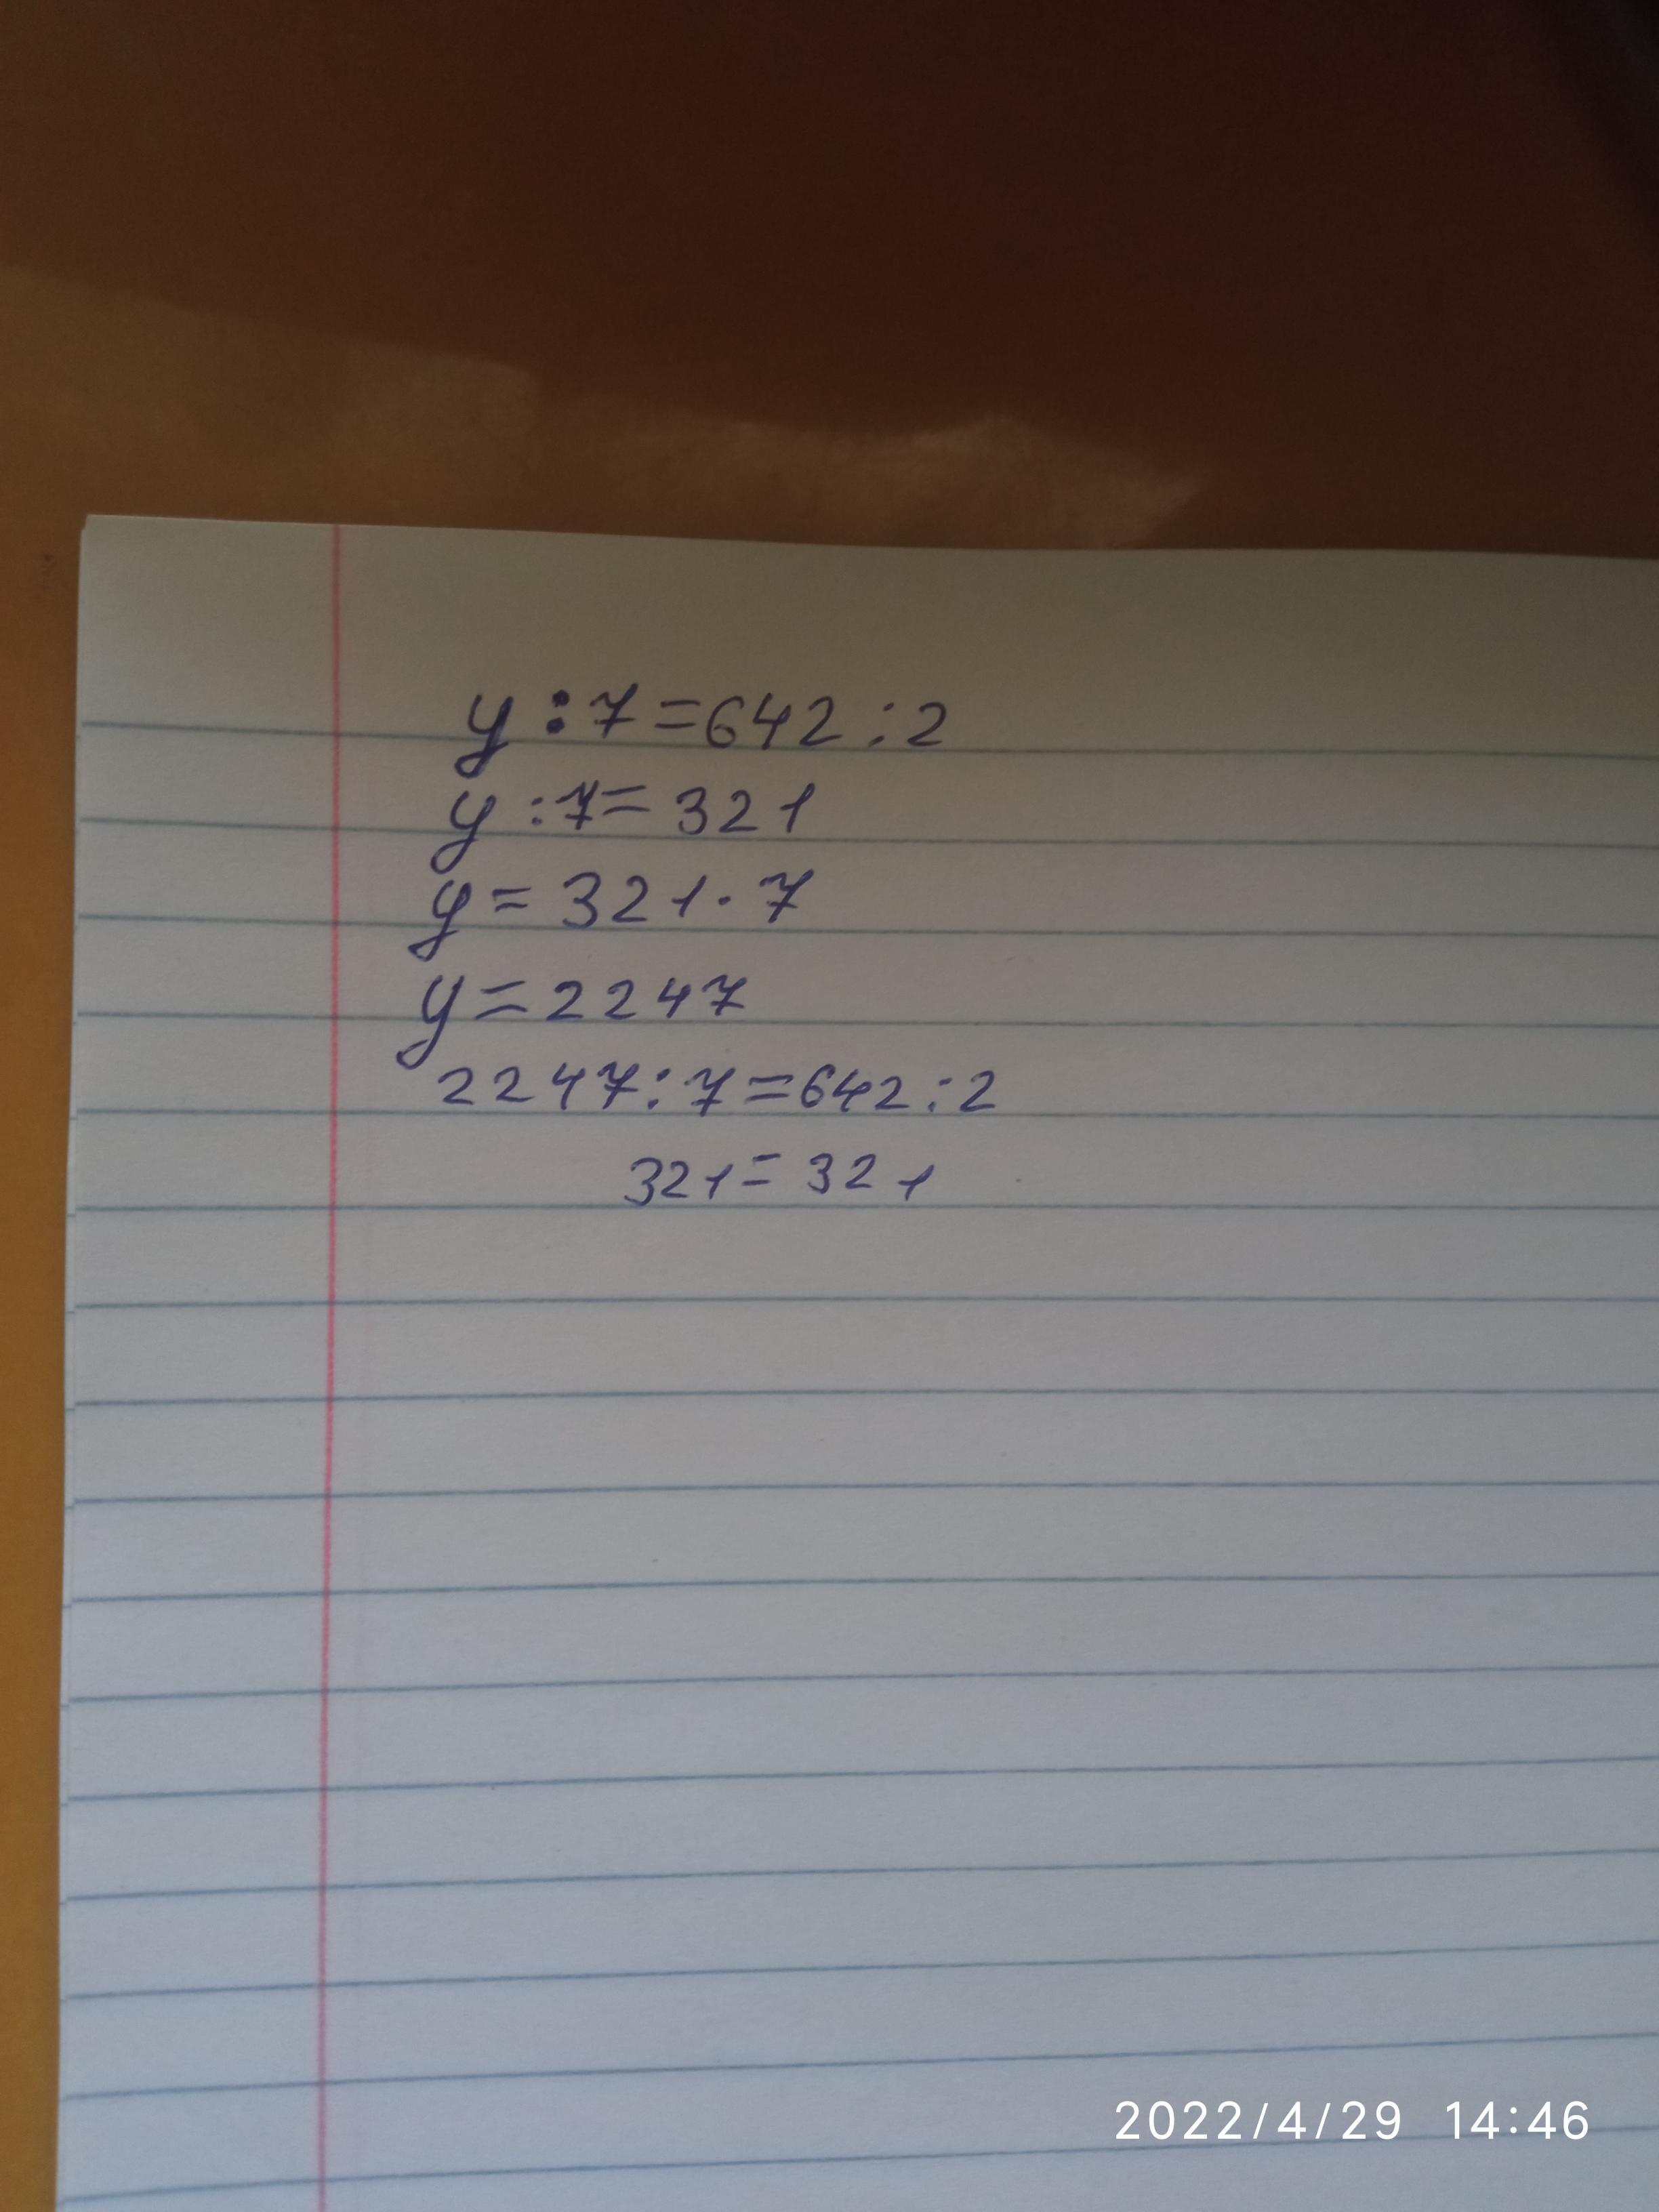 y : 7 = 642 : 2
y : 7 = 321
y = 321 · 7
y = 2247
2247 : 7 = 642 : 2
321 = 321
2022/4/29 14:46